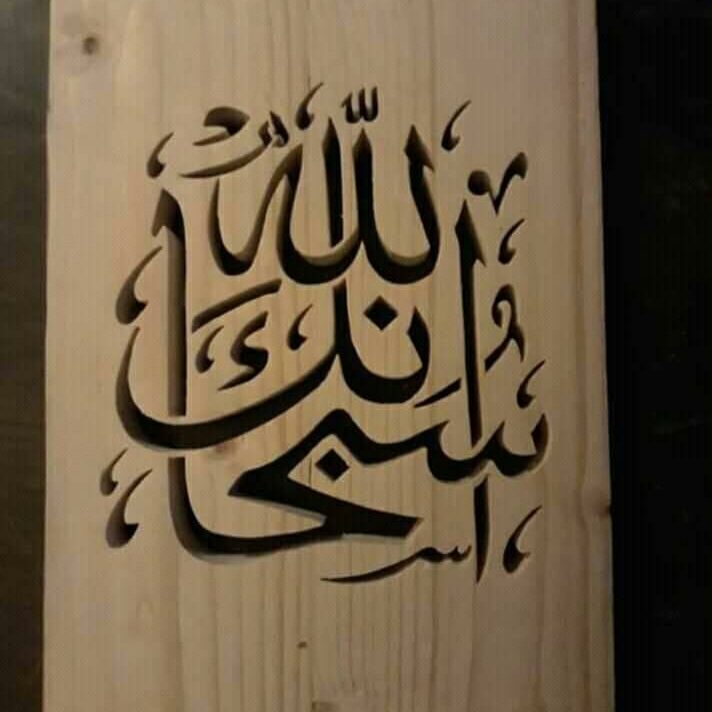 سبحانك اللهم